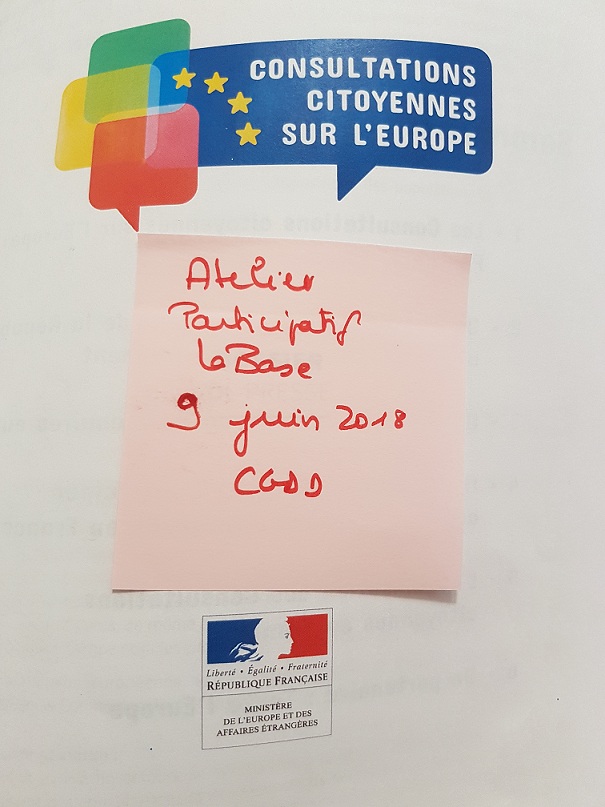 CONSULTATIONS
CITOYENNES
SUR L'EUROPE
Atelier
Participatif
La Base
9 juin 2018
CGDD
Liberté • Égalité • Fraternité
RÉPUBLIQUE FRANÇAISE
MINISTÈRE
DE L'EUROPE ET DES
AFFAIRES ÉTRANGÈRES